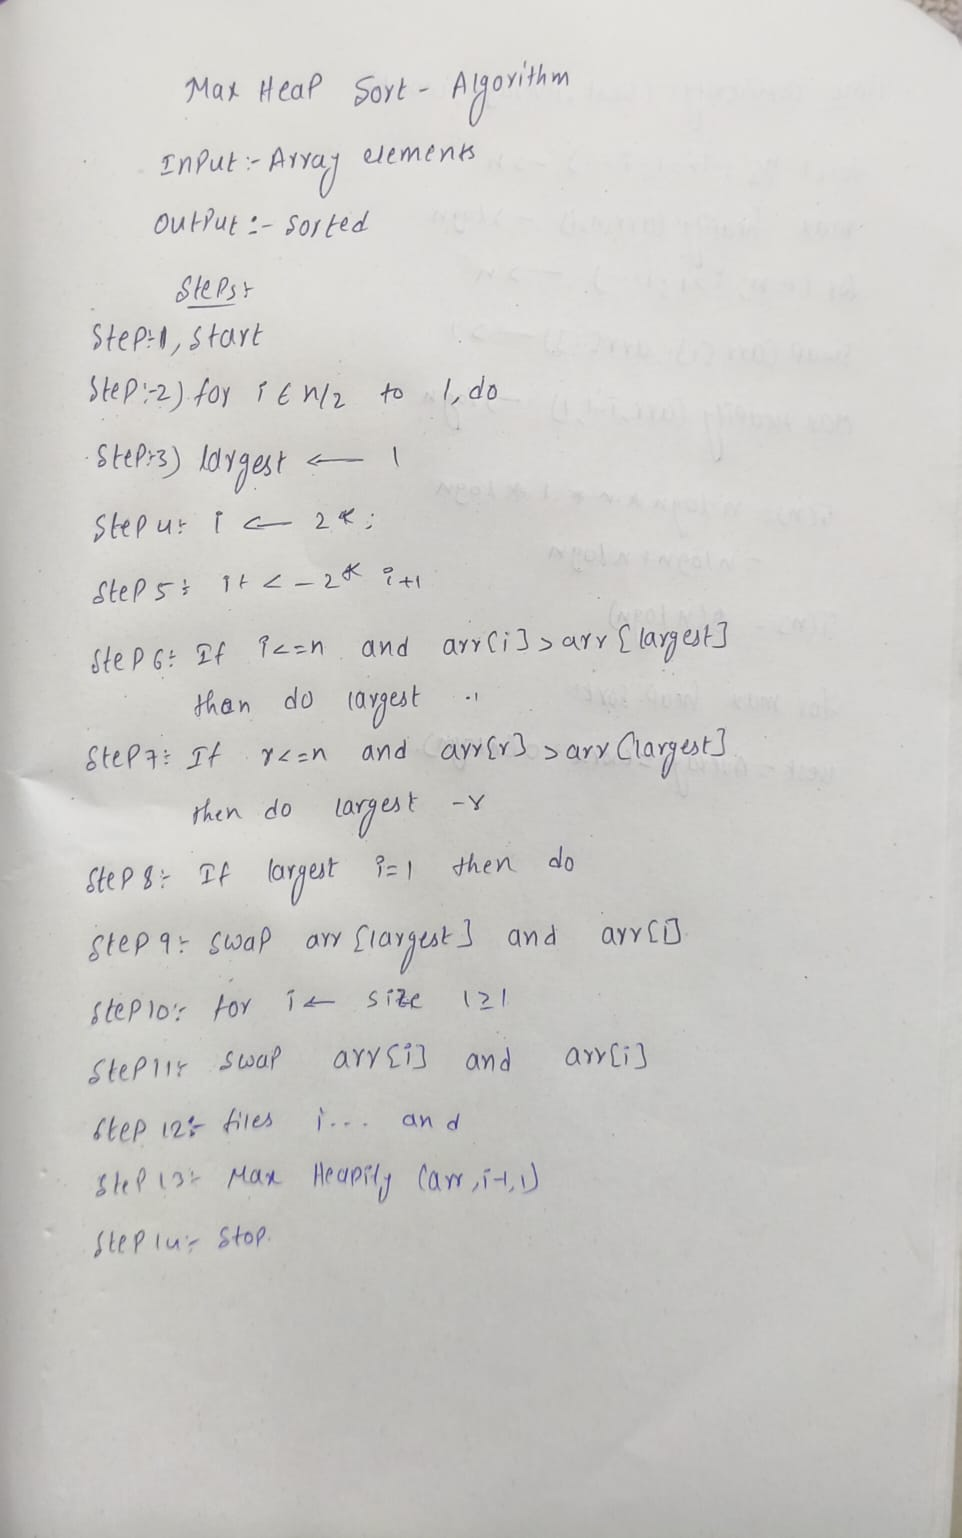 Max Heap Sort - Algorithm
Input :- Array elements
Output :- Sorted
Steps:-
Step:-1, Start
Step:-2) for i ← n/2 to 1, do
Step:-3) largest ← 1
Step 4:- i ← 2* i
Step 5:- it < - 2* i+1
Step 6:- If i<=n and arr[i] > arr [largest]
than do largest
Step 7:- If r<=n and arr[r] > arr [largest]
then do largest - r
Step 8:- If largest i=1 then do
Step 9:- Swap arr [largest] and arr[i]
Step 10:- for i ← size 1≥1
Step 11:- Swap arr[i] and arr[i]
Step 12:- files i... and
Step 13:- Max Heapily (arr, i-1, 1)
Step 14:- Stop.